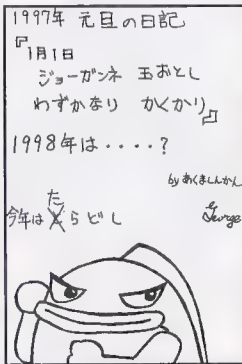 1997年 元旦の日記
『1月1日
ジョーガンネ 玉おとし
わずかなり かくかり』
1998年は・・・・?
by あくましんかん
George
た
今年はとらどし